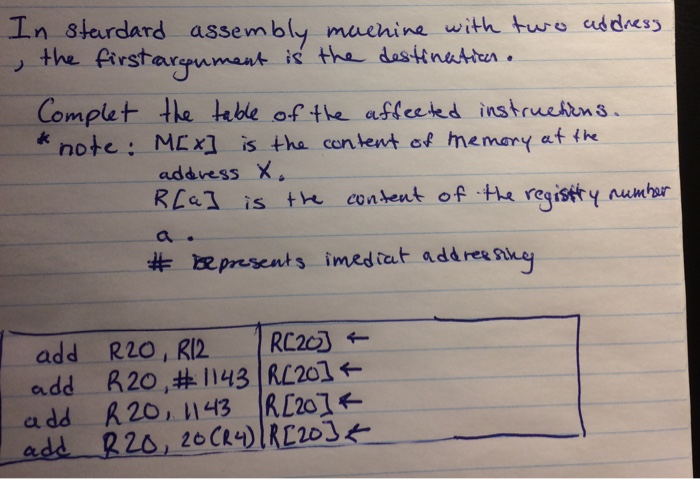 In stardard assembly machine with two address
, the first argument is the destination.
Complet the table of the affected instructions.
* note : M[x] is the content of memory at the
address X.
R[a] is the content of the registry number
a .
# represents imediat addressing
add R20, R12 R[20] ←
add R20, #1143 R[20] ←
add R20, 1143 R[20] ←
add R20, 20(R4) R[20] ←